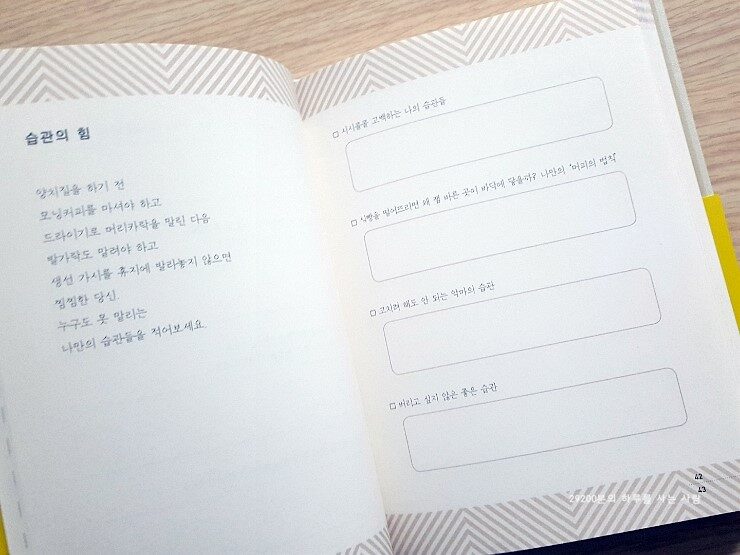 습관의 힘
양치질을 하기 전
모닝커피를 마셔야 하고
드라이기로 머리카락을 말린 다음
발가락도 말려야 하고
생선 가시를 휴지에 발라놓지 않으면
찜찜한 당신.
누구도 못 말리는
나만의 습관들을 적어보세요.
□ 시시콜콜 고백하는 나의 습관들
□ 식빵을 떨어뜨리면 왜 잼 바른 곳이 바닥에 닿을까? 나만의 '머피의 법칙'
□ 고치려 해도 안 되는 악마의 습관
□ 버리고 싶지 않은 좋은 습관
42
43
29200분의 하루를 사는 사람